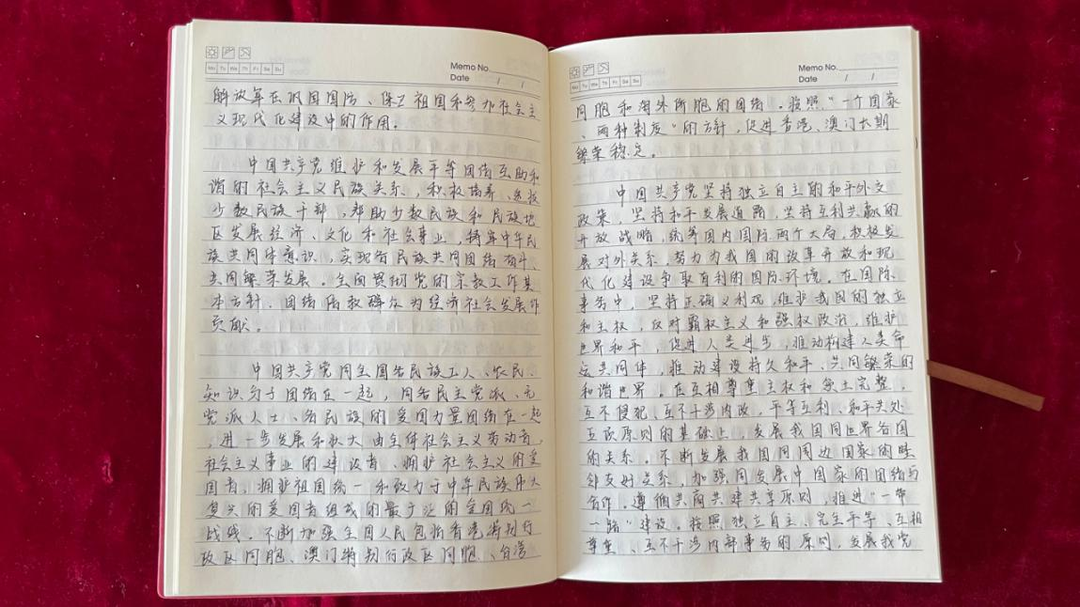 Memo No.
Date / /
Mo Tu We Th Fr Sa Su
解放军在巩固国防、保卫祖国和参加社会主
义现代化建设中的作用。
中国共产党维护和发展平等团结互助和
谐的社会主义民族关系，积极培养、选拔
少数民族干部，帮助少数民族和民族地
区发展经济、文化和社会事业，铸牢中华民
族共同体意识，实现各民族共同团结奋斗、
共同繁荣发展。全面贯彻党的宗教工作基
本方针，团结信教群众为经济社会发展作
贡献。
中国共产党同全国各民族工人、农民、
知识分子团结在一起，同各民主党派、无
党派人士、各民族的爱国力量团结在一起
，进一步发展和壮大由全体社会主义劳动者、
社会主义事业的建设者、拥护社会主义的爱
国者、拥护祖国统一和致力于中华民族伟大
复兴的爱国者组成的最广泛的爱国统一
战线。不断加强全国人民包括香港特别行
政区同胞、澳门特别行政区同胞、台湾
Memo No.
Date / /
Mo Tu We Th Fr Sa Su
同胞和海外侨胞的团结。按照“一个国家
、两种制度”的方针，促进香港、澳门长期
繁荣稳定。
中国共产党坚持独立自主的和平外交
政策，坚持和平发展道路，坚持互利共赢的
开放战略，统筹国内国际两个大局，积极发
展对外关系，努力为我国的改革开放和现
代化建设争取有利的国际环境。在国际
事务中，坚持正确义利观，维护我国的独立
和主权，反对霸权主义和强权政治，维护
世界和平，促进人类进步，推动构建人类命
运共同体，推动建设持久和平、共同繁荣的
和谐世界。在互相尊重主权和领土完整、
互不侵犯、互不干涉内政、平等互利、和平共处
五项原则的基础上，发展我国同世界各国
的关系。不断发展我国同周边国家的睦
邻友好关系，加强同发展中国家的团结与
合作。遵循共商共建共享原则，推进“一带
一路”建设。按照独立自主、完全平等、互相
尊重、互不干涉内部事务的原则，发展我党